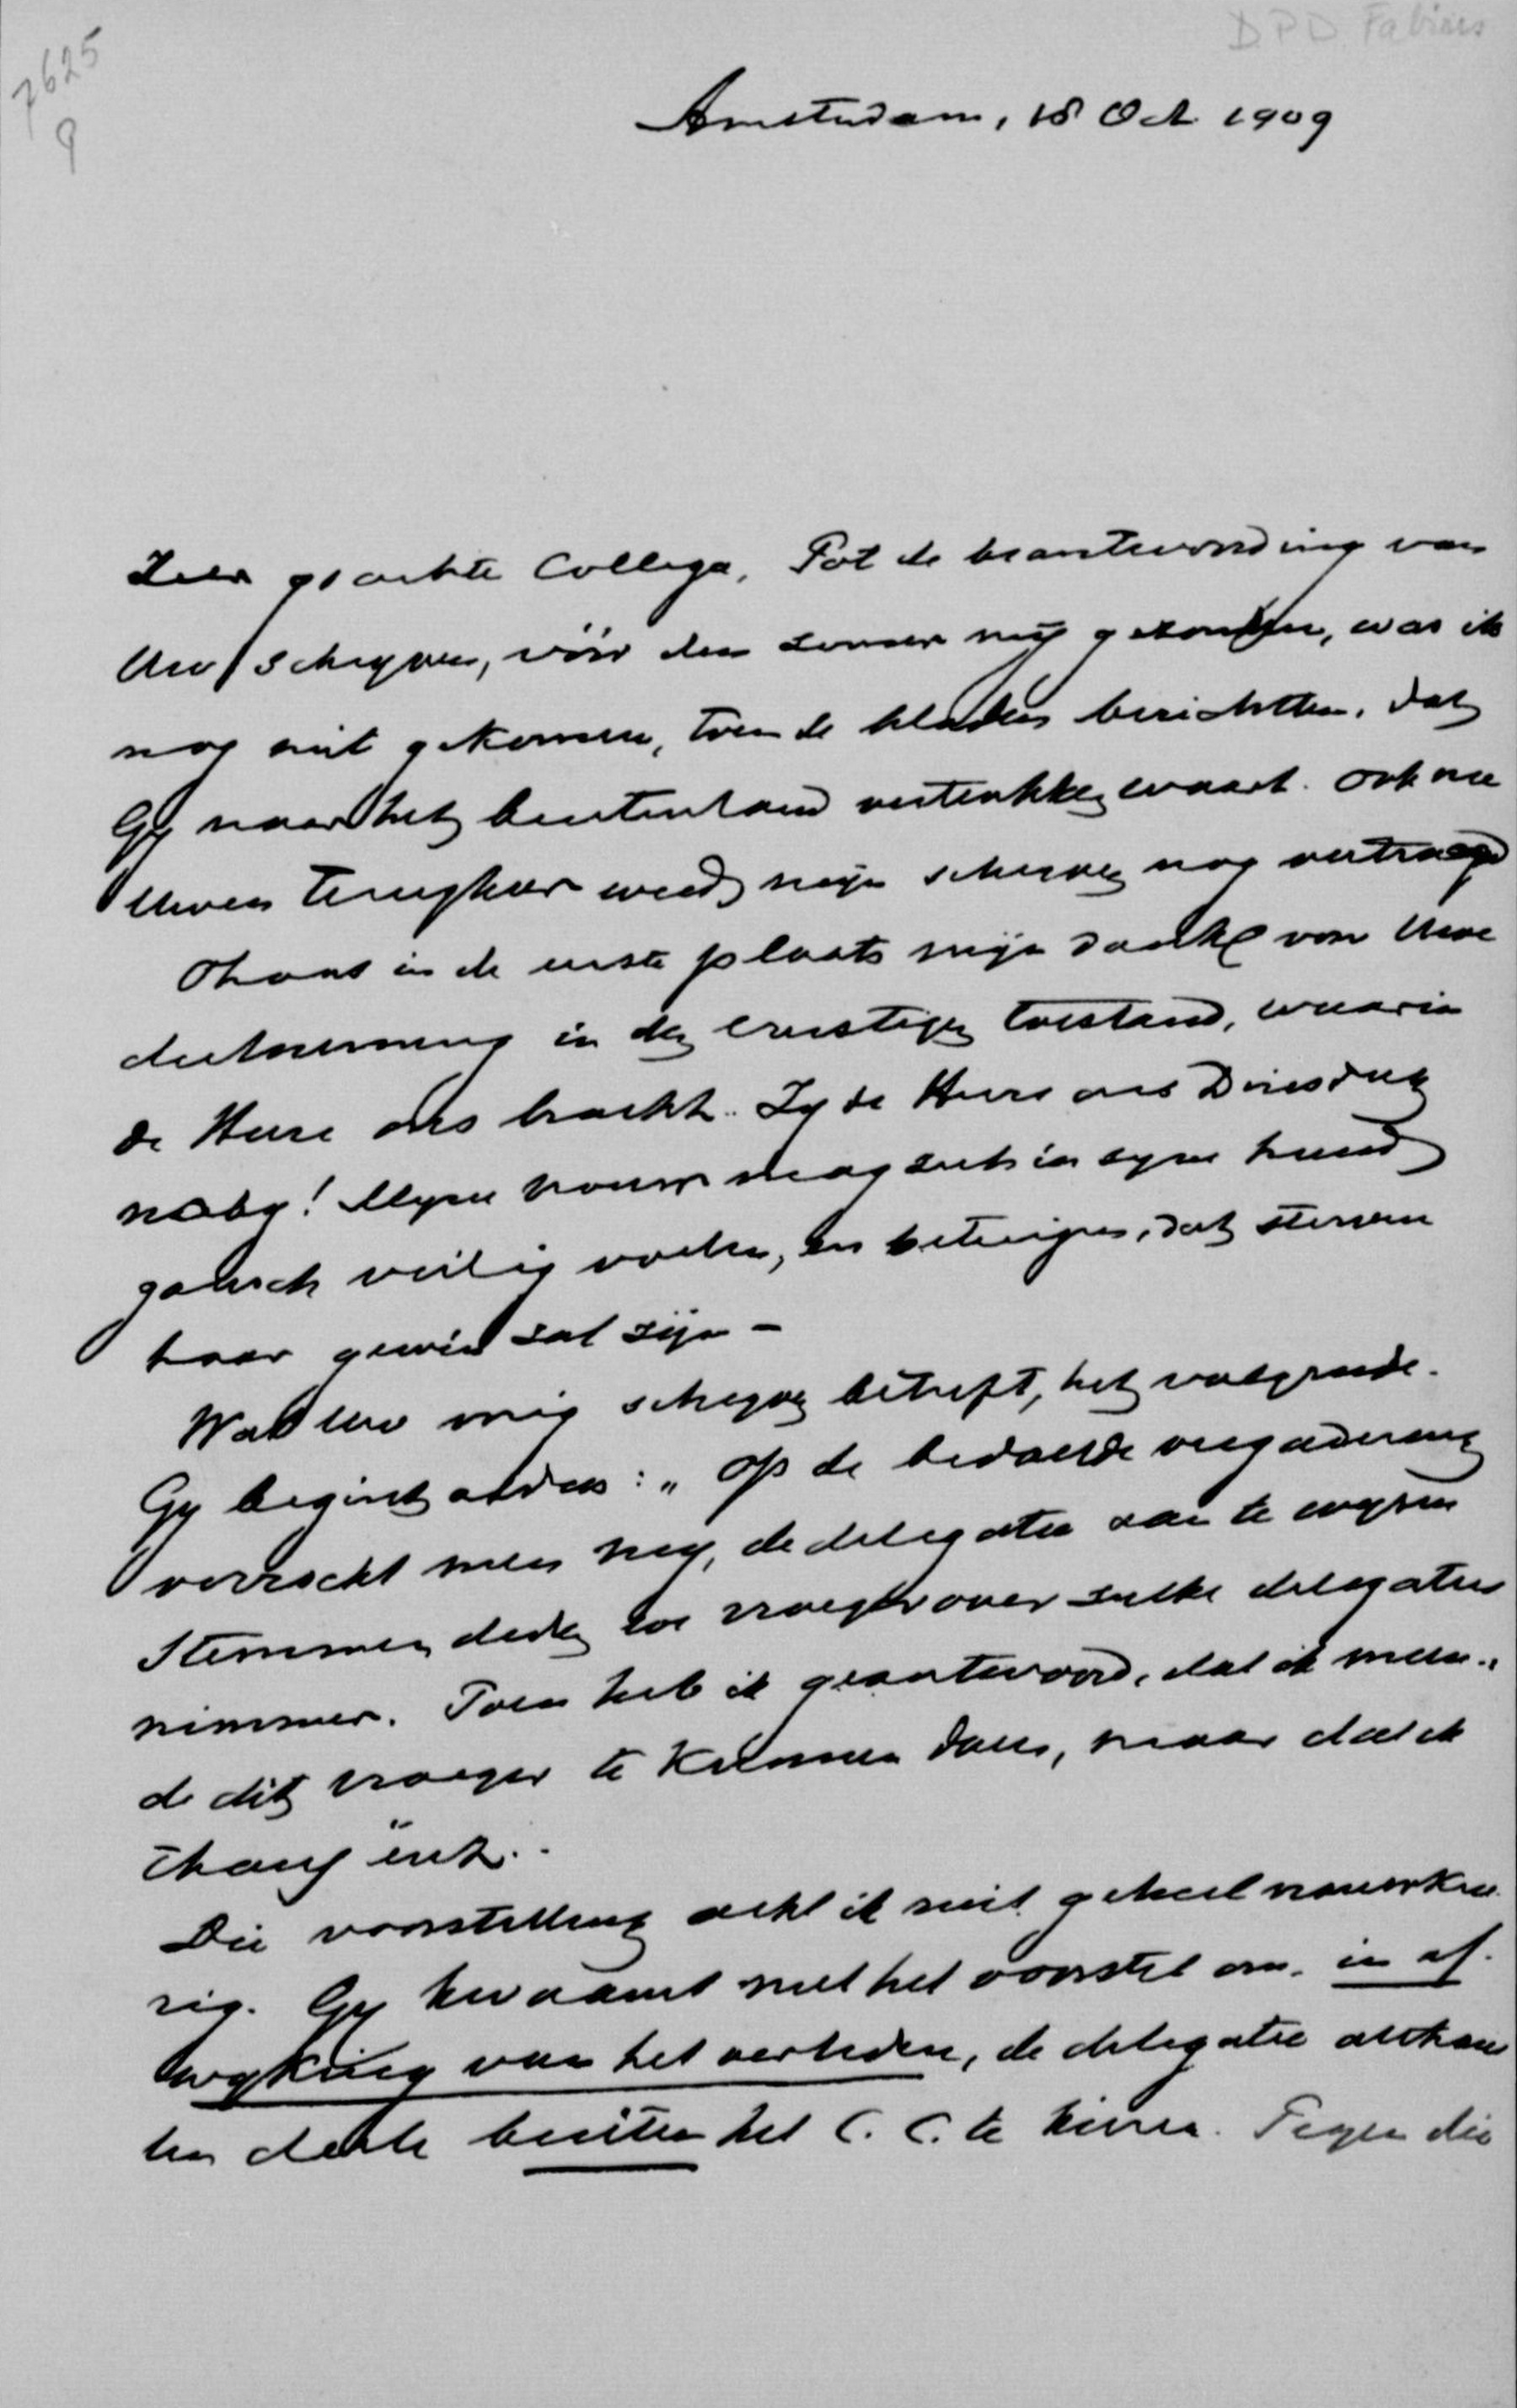 7625
9
DPD Fabius
Amsterdam, 18 Oct 1909
Zeer geachte Collega, Tot de beantwoording van
Uw schrijven, vóór den zomer mij gezonden, was ik
nog niet gekomen, toen de bladen berichtten, dat
Gij naar het buitenland vertrokken waart. Ook na
Uwen terugkeer werd mijn schrijven nog vertraagd
Thans in de eerste plaats mijn dank voor Uwe
deelneming in den ernstigen toestand, waarin
de Heere ons bracht. Zij de Heere ons Dinsdag
nabij! Mijne vrouw mag zich in zijne hand
gansch veilig voelen, en betuigen, dat sterven
haar gewin zal zijn -
Wat Uw vorig schrijven betreft, het volgende.
Gij begint aldus: „Op de bedoelde vergadering
verzocht men mij, de delegatie aan te wijzen
Stemmen deden we vroeger over zulke delegaties
nimmer. Toen heb ik geantwoord, dat ik meen-
de dit vroeger te kunnen doen, maar dat ik
thans
Die voorstelling acht ik niet geheel nauwkeu
rig. Gij kwaamt met het voorstel om, in af-
wijking van het verleden, de delegatie althans
ten deele buiten het C. C. te kiezen. Tegen die